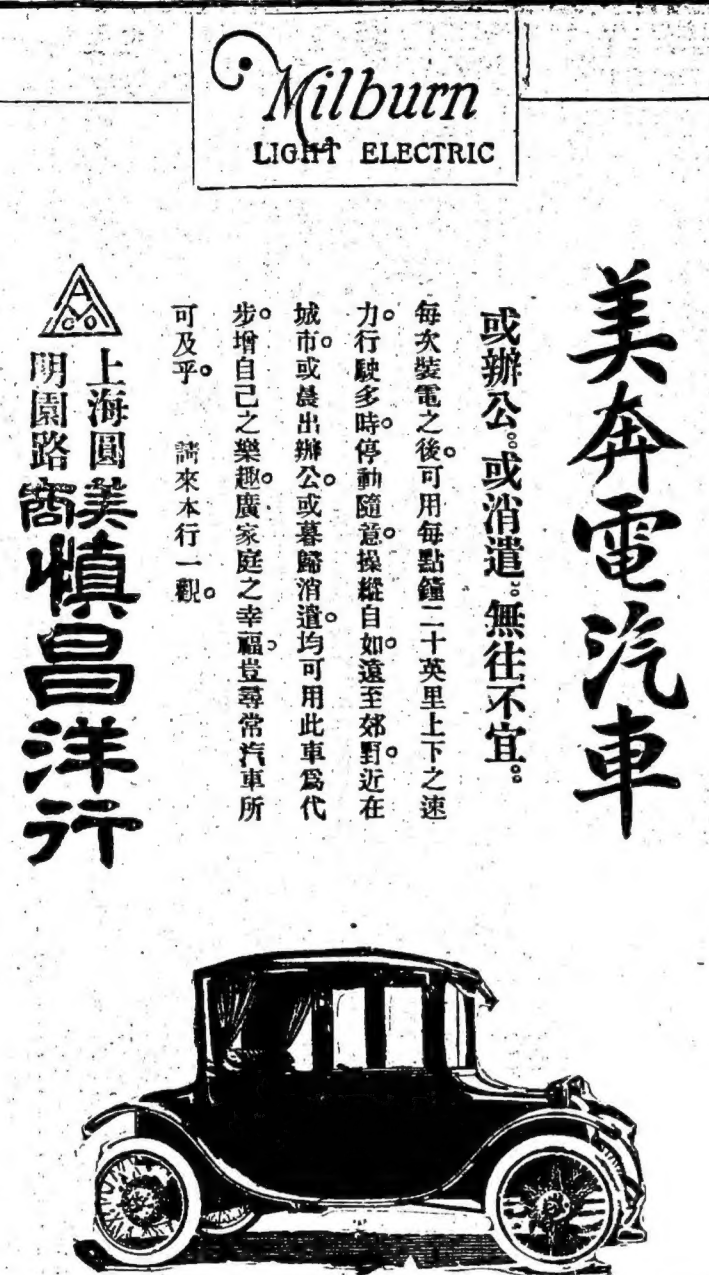 Milburn
LIGHT ELECTRIC
美奔電汽車
或辦公。或消遣。無往不宜。
每次裝電之後。可用每點鐘二十英里上下之速
力。行駛多時。停動隨意。操縱自如。遠至郊野。近在
城市。或晨出辦公。或暮歸消遣。均可用此車爲代
步。增自己之樂趣。廣家庭之幸福。豈尋常汽車所
可及乎。 請來本行一觀。
AM
CO
上海圓
明園路
美商
慎昌洋行